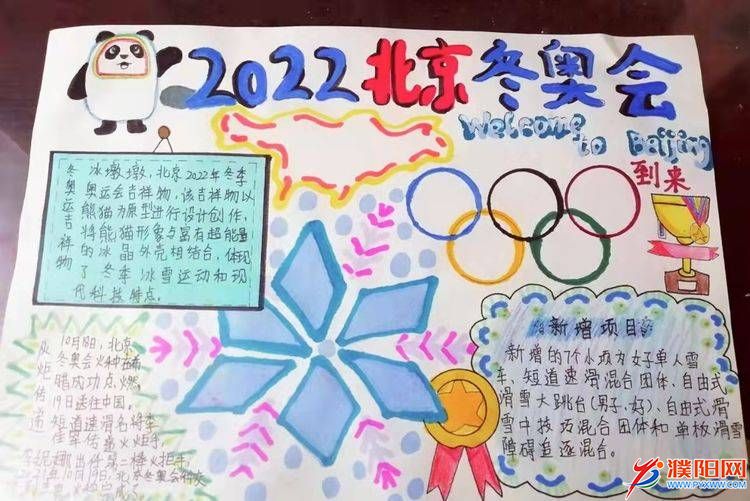 2022北京冬奥会
Welcome to Beijing
到来
冬奥运吉祥物
冰墩墩，北京2022年冬季
奥运会吉祥物，该吉祥物以
熊猫为原型进行设计创作，
将熊猫形象与富有超能量
的冰晶外壳相结合，体现
了冬季冰雪运动和现
代科技特点。
火炬传递
10月18日，北京
冬奥会火种在希
腊成功点燃，
19日送往中国。
短道速滑名将李
佳军任第
新增项目
新增的7个小项为女子单人雪
车、短道速滑混合团体、自由式
滑雪大跳台(男子,女)、自由式滑
雪空中技巧混合团体和单板滑雪
障碍追逐混合。
濮阳网
WWW.PYXWW.COM